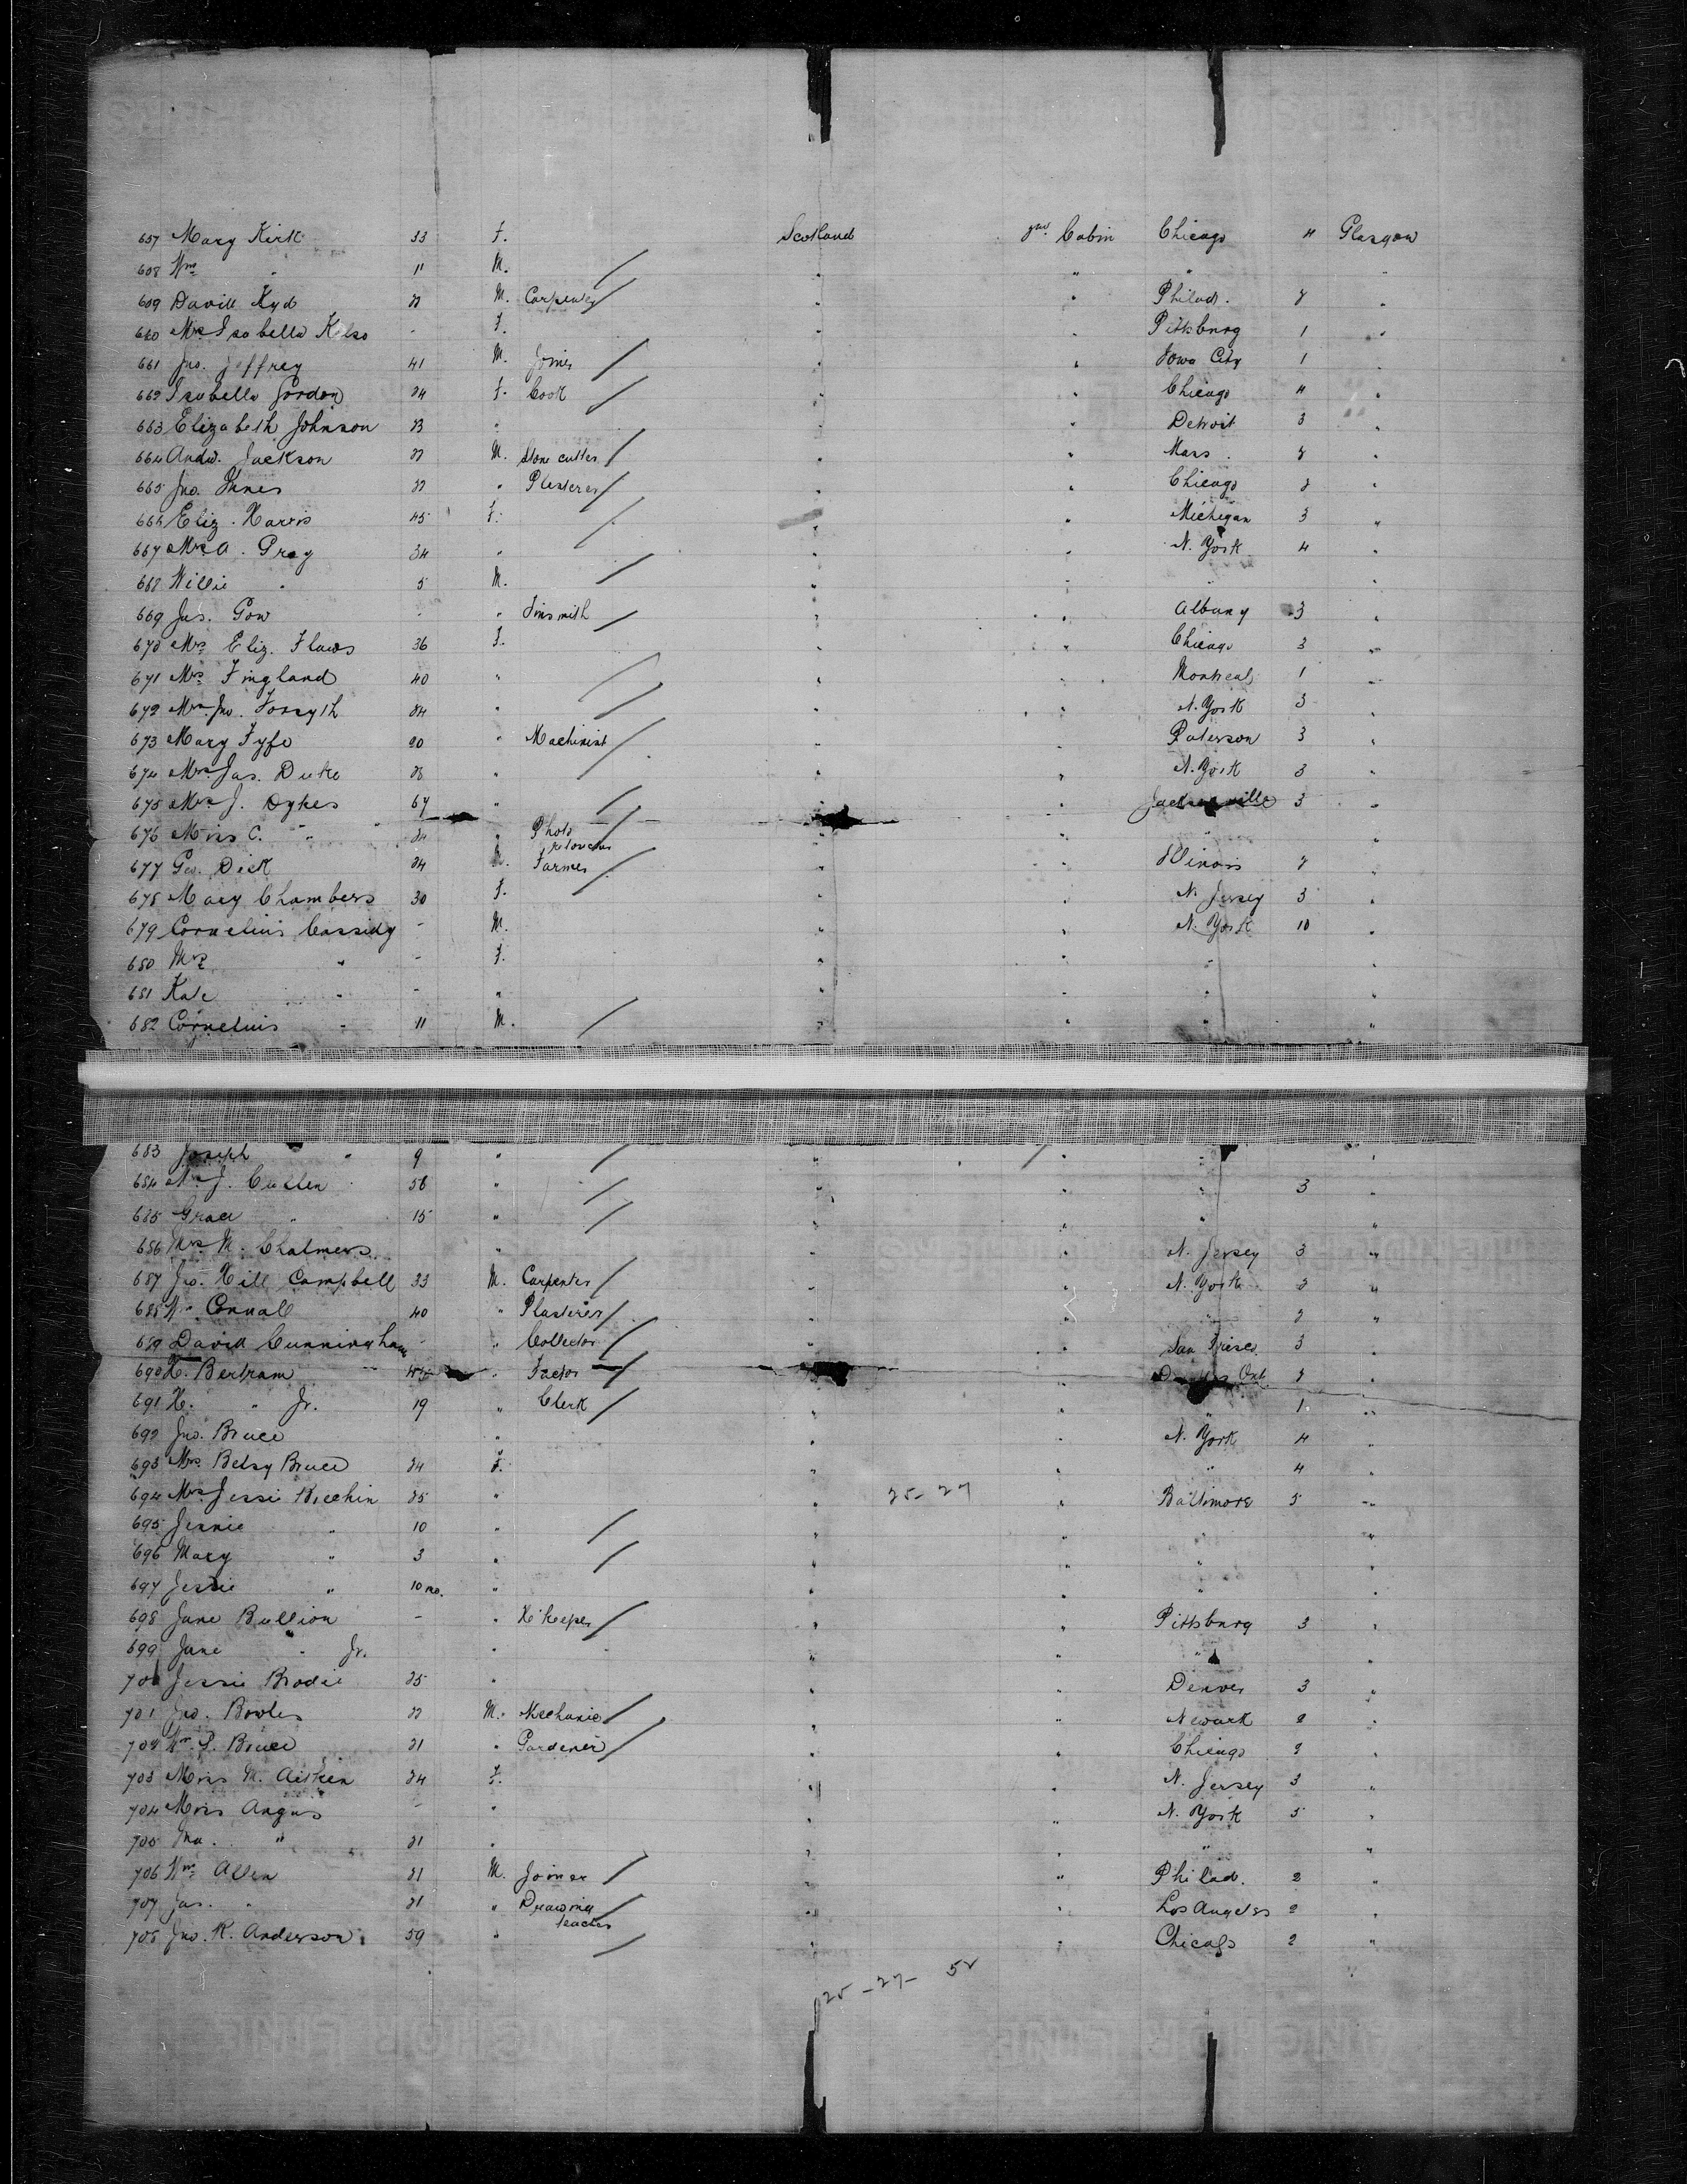 657 Mary Kirk 33 F. Scotland 2nd Cabin Chicago 4 Glasgow
658 Wm " 11 M. " " " "
659 David Kyd 22 M. Carpenter " " Philad. 2 "
660 Mrs Isabella Kelso - F. " " Pittsburg 1 "
661 Jno. Jeffrey 41 M. Joiner " " Iowa City 1 "
662 Isabella Gordon 24 F. Cook " " Chicago 4 "
663 Elizabeth Johnson 23 " " " Detroit 3 "
664 Andw. Jackson 22 M. Stone cutter " " Mass. 2 "
665 Jno. Innes 22 " Plasterer " " Chicago 2 "
666 Eliz. Harris 45 F. " " Michigan 3 "
667 Mrs A. Gray 34 " " " N. York 4 "
668 Willie " 5 M. " " " "
669 Jas. Gow - " Tinsmith " " Albany 3 "
670 Mrs Eliz. Flaws 36 F. " " Chicago 3 "
671 Mrs Fingland 40 " " " Montreal 1 "
672 Mrs Jno. Forsyth 24 " " " N. York 3 "
673 Mary Fyfe 20 " Machinist " " Paterson 3 "
674 Mrs Jas. Duke 28 " " " N. York 3 "
675 Mrs J. Dykes 67 " " " Jacksonville 3 "
676 Miss C. " 24 " Photo retoucher " " " "
677 Geo. Dick 24 M. Farmer " " Illinois 2 "
678 Mary Chambers 30 F. " " N. Jersey 3 "
679 Cornelius Cassidy - M. " " N. York 10 "
680 Mrs " - F. " " " "
681 Kate " - " " " " "
682 Cornelius " 11 M. " " " "
683 Joseph " 9 " " " " "
684 J. Cullen 58 " " " " 3 "
685 Grace " 15 " " " " "
686 Mrs M. Chalmers " " " N. Jersey 3 "
687 Jno. Hill Campbell 33 M. Carpenter " " N. York 2 "
688 Wm Connall 40 " Plasterer " " " 2 "
689 David Cunningham - " Collector " " San Frisc. 3 "
690 H. Bertram " Factor " Ont. 2 "
691 H. " Jr. 19 " Clerk " " " 1 "
692 Jno. Bruce " " " N. York 4 "
693 Mrs. Betsy Bruce 24 F. " " " 4 "
694 Mrs Jessie Breehin 25 " " 25-27 " Baltimore 5 "
695 Jennie " 10 " " " " "
696 Mary " 3 " " " " "
697 Jessie " 10 mo. " " " " "
698 Jane Bullion - " H'keeper " " Pittsburg 3 "
699 Jane " Jr. " " " " "
700 Jessie Brodie 25 " " " Denver 3 "
701 Jno. Bowles 22 M. Mechanic " " Newark 2 "
702 Wm. S. Bruce 21 " Gardener " " Chicago 2 "
703 Miss M. Aitken 24 F. " " N. Jersey 3 "
704 Miss Angus - " " " N. York 5 "
705 Ina. " 21 " " " " "
706 Wm Allen 21 M. Joiner " " Philad. 2 "
707 Jas. " 21 " Drawing teacher " " Los Angeles 2 "
708 Jno. K. Anderson 59 " " " Chicago 2 "
25-27- 52